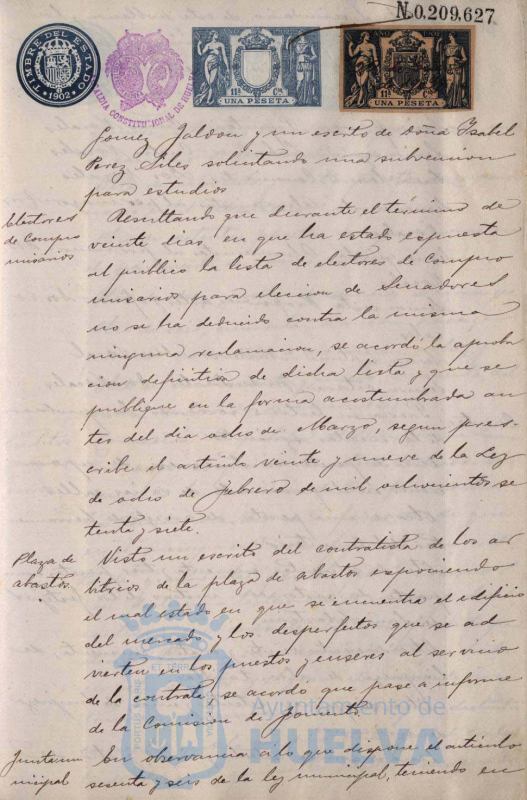 N.0.209.627
TIMBRE DEL ESTADO
1902
ALCALDIA CONSTITUCIONAL DE HUELVA
11ª Cª
UNA PESETA
11ª Cª
UNA PESETA
Gomez Jaldon y un escrito de doña Ysabel
Perez Siles solicitando una subvencion
para estudios
Electores
de Compro
misarios
Resultando que durante el término de
veinte dias, en que ha estado espuesta
al público la lista de electores de Compro
misarios para eleccion de Senadores
no se ha deducido contra la misma
ninguna reclamacion, se acordó la aproba
cion definitiva de dicha lista y que se
publique en la forma acostumbrada an
tes del dia ocho de Marzo, segun pres-
cribe el artículo veinte y nueve de la Ley
de ocho de Febrero de mil ochocientos se
tenta y siete.
Plaza de
abastos.
Visto un escrito del contratista de los ar
bitrios de la plaza de abastos esponiendo
el mal estado en que se encuentra el edificio
del mercado y los desperfectos que se ad
vierten en los puestos y enseres al servicio
de la contrata, se acordó que pase a informe
de la Comision de Fomento.
Junta mu
nicipal
En observancia a lo que dispone el artículo
sesenta y seis de la ley municipal, teniendo en
Ayuntamiento de
HUELVA